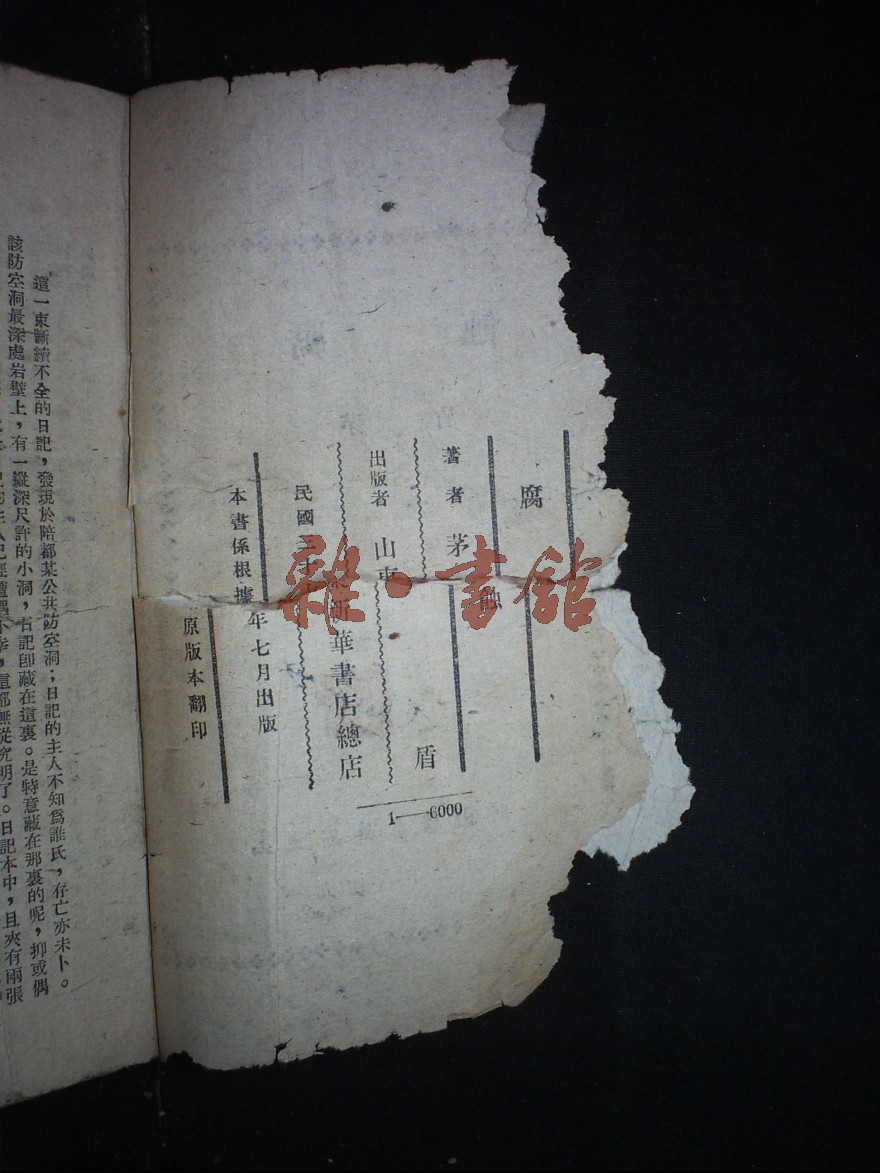 腐蝕
著者 茅盾
出版者 山東新華書店總店
民國三十 年七月出版
本書係根據 原版本翻印
1——6000
這一束斷續不全的日記，發現於陪都某公共防空洞；日記的主人不知爲誰氏，存亡亦未卜。
該防空洞最深處岩壁上，有一縱深尺許的小洞，右記卽藏在這裏。是特意藏在那裏的呢，抑或偶
經遭遇不幸，這都無從究明了。日記本中，且夾有兩張
雜·書館